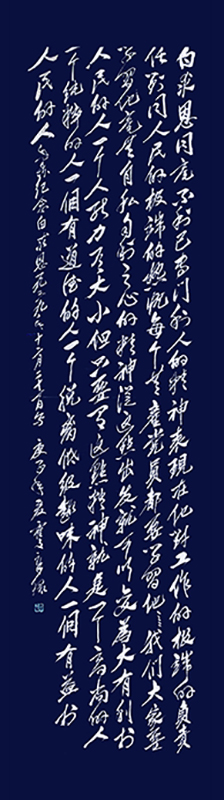 白求恩同志毫不利己专门利人的精神表现在他对工作的极端的负责
任对同人民的极端的热忱每个共产党员都要学习他我们大家要
学习他毫无自私自利之心的精神从这点出发就可以变为大有利于
人民的人一个人能力有大小但只要有这点精神就是一个高尚的人
一个纯粹的人一個有道德的人一个脱离低级趣味的人一個有益于
人民的人 纪念白求恩 十二月二十一日